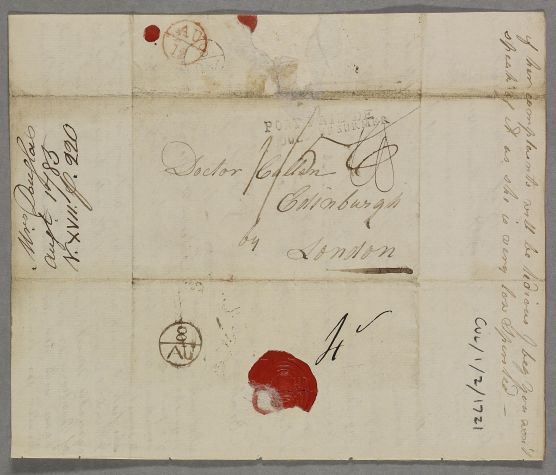 AU
14
Doctor Cullen
Edinburgh
by
London
Mrs Douglas
Augt 14 83
N. XVIII. f. 220
of her complaints will be tedious I beg you wont
speak of it as she is very low Spirited —
CUL/1/2/1721
AU